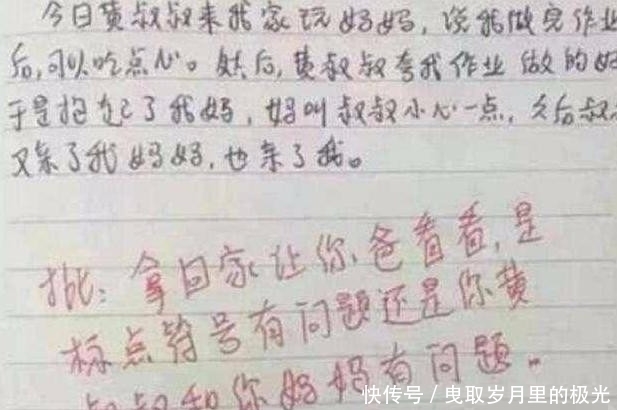 今日黄叔叔来我家玩妈妈,说我做完作业
后,可以吃点心。然后,黄叔叔夸我作业做的好
于是抱起了我妈,妈叫叔叔小心一点,之后叔叔
又亲了我妈妈,也亲了我。
批:拿回家让你爸看看,是
标点符号有问题还是你黄
叔叔和你妈妈有问题。
快传号/曳取岁月里的极光